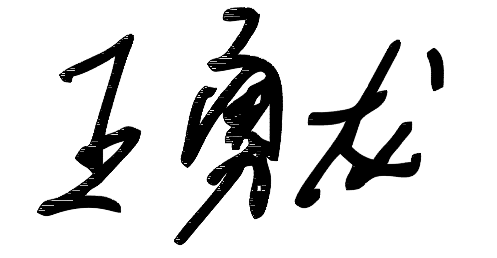 王勇龙